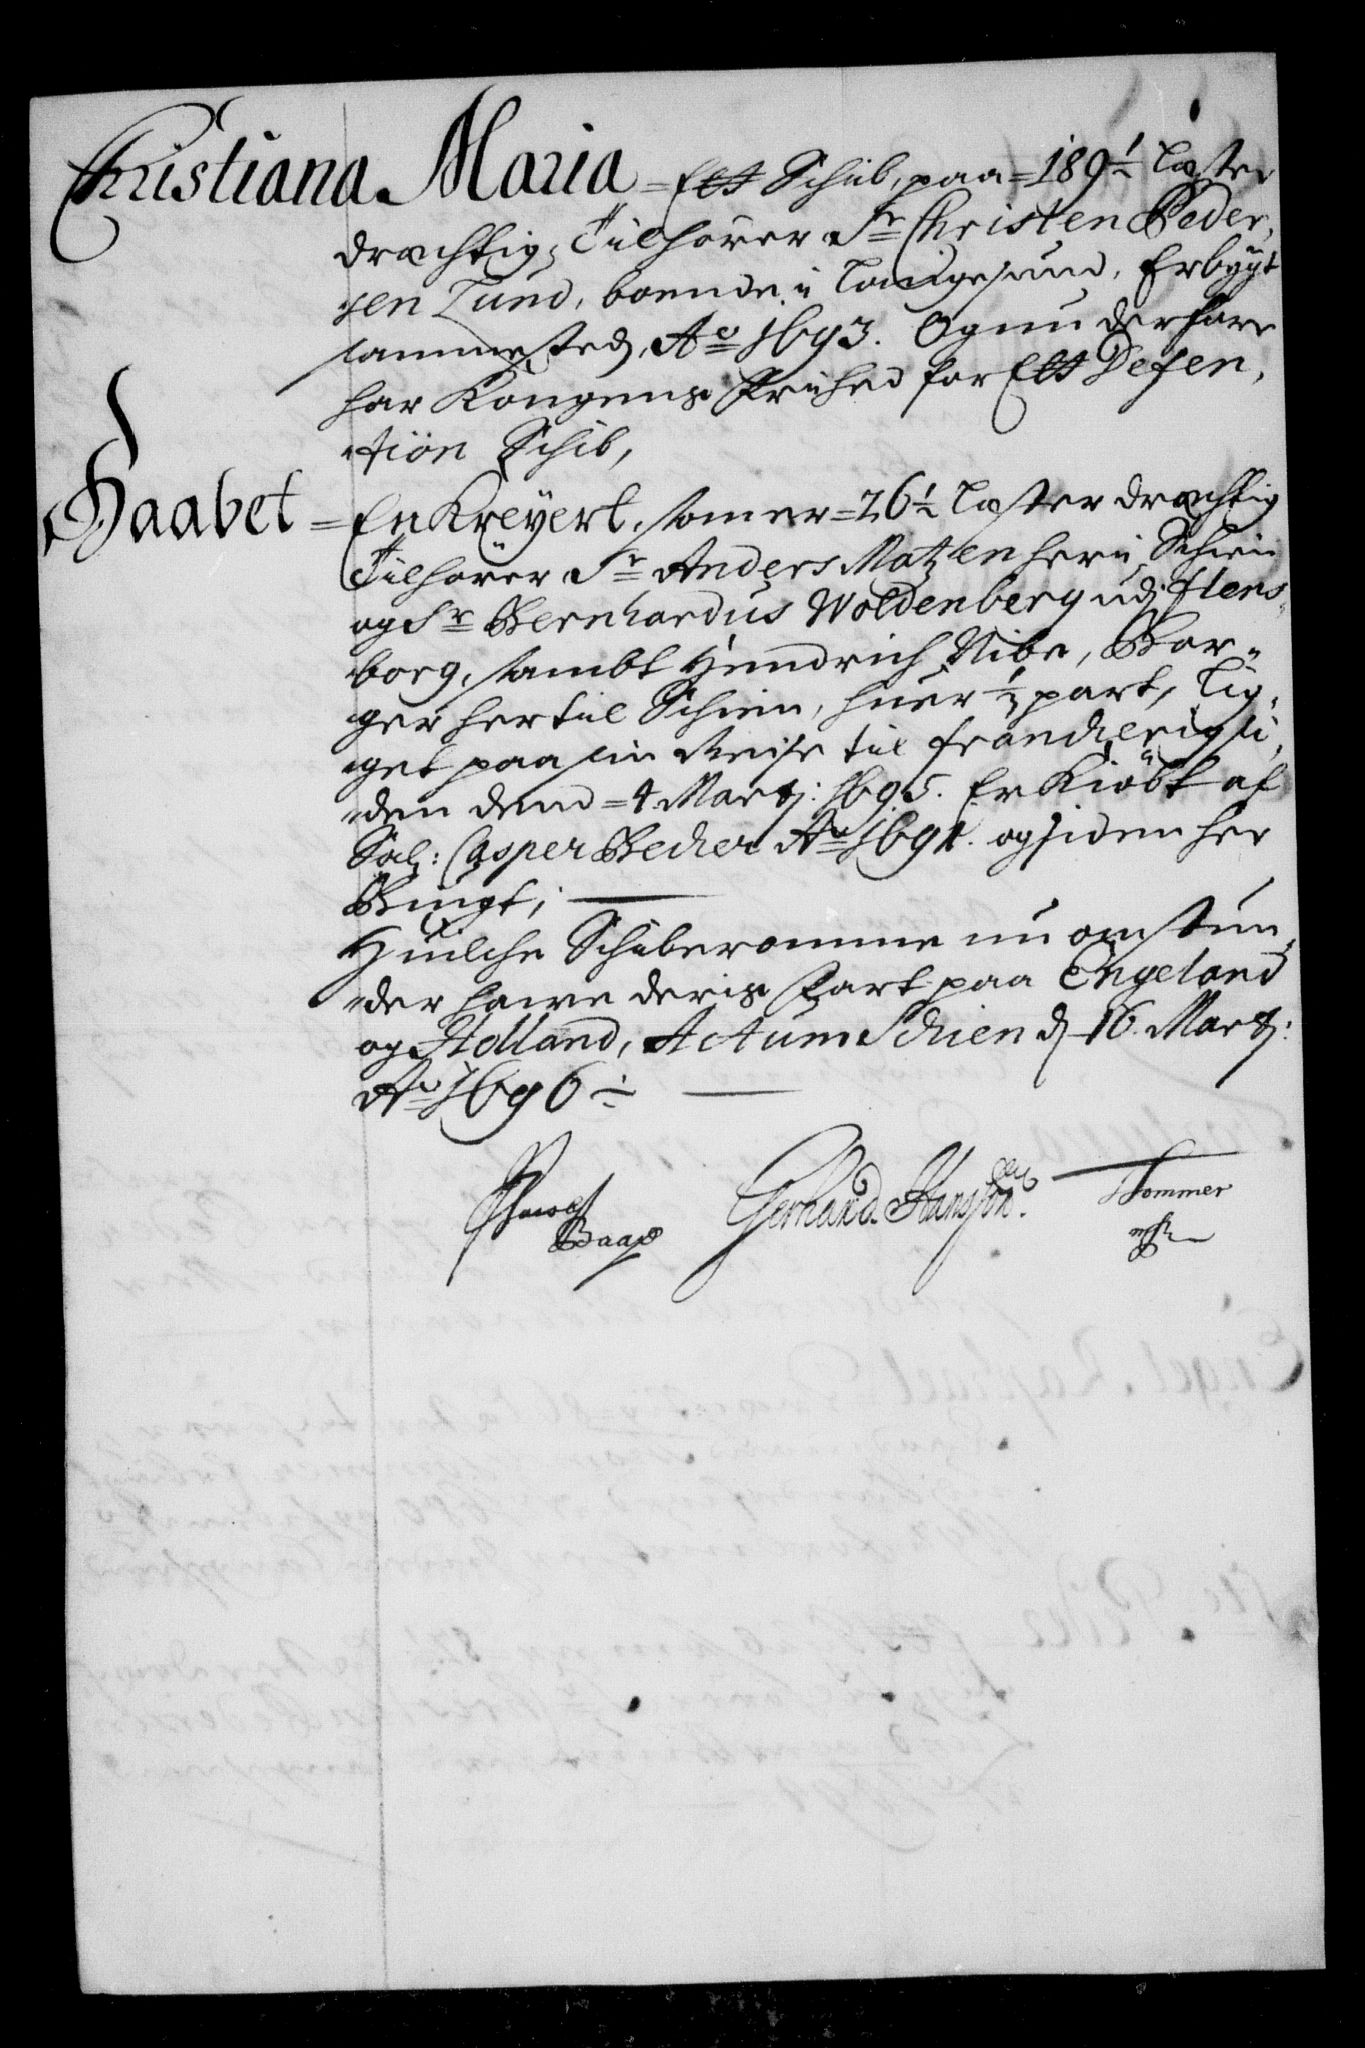 Christiana Maria = Ett Schib, paa = 189½ Læster
dræchtig, Tilhører Sr Christen Peder,
sen Lund, boende i Langesund, Erbygt
sammested, Ao 1693. Og nu derfore
har Kongens Friihed for Ett Defen,
tion Schib,
Haabet = En Kreyert, som er = 26½ Læster dræchtig
Tilhører Sr Anders Matzen her i Schien
og Sr Bernhardus Woldenberg udj Flens,
borg, sambt Hendrich Nibe, Bor,
ger her til Schien, huer ⅓ part, Lig,
get paa sin Reise til Franckerig si,
den dend = 4 Martj: 1695. Er Kiöbt af
Sal: Casper Becker Ao 1691. og siden her
Brugt; —
Huilche Schiberomme nu omstun,
der hawe deris Fart paa Engeland
og Holland, Actum Schien d 16. Martj:
Ao 1696 ÷ —
Baass Gerhard Hansson Sommer
mp